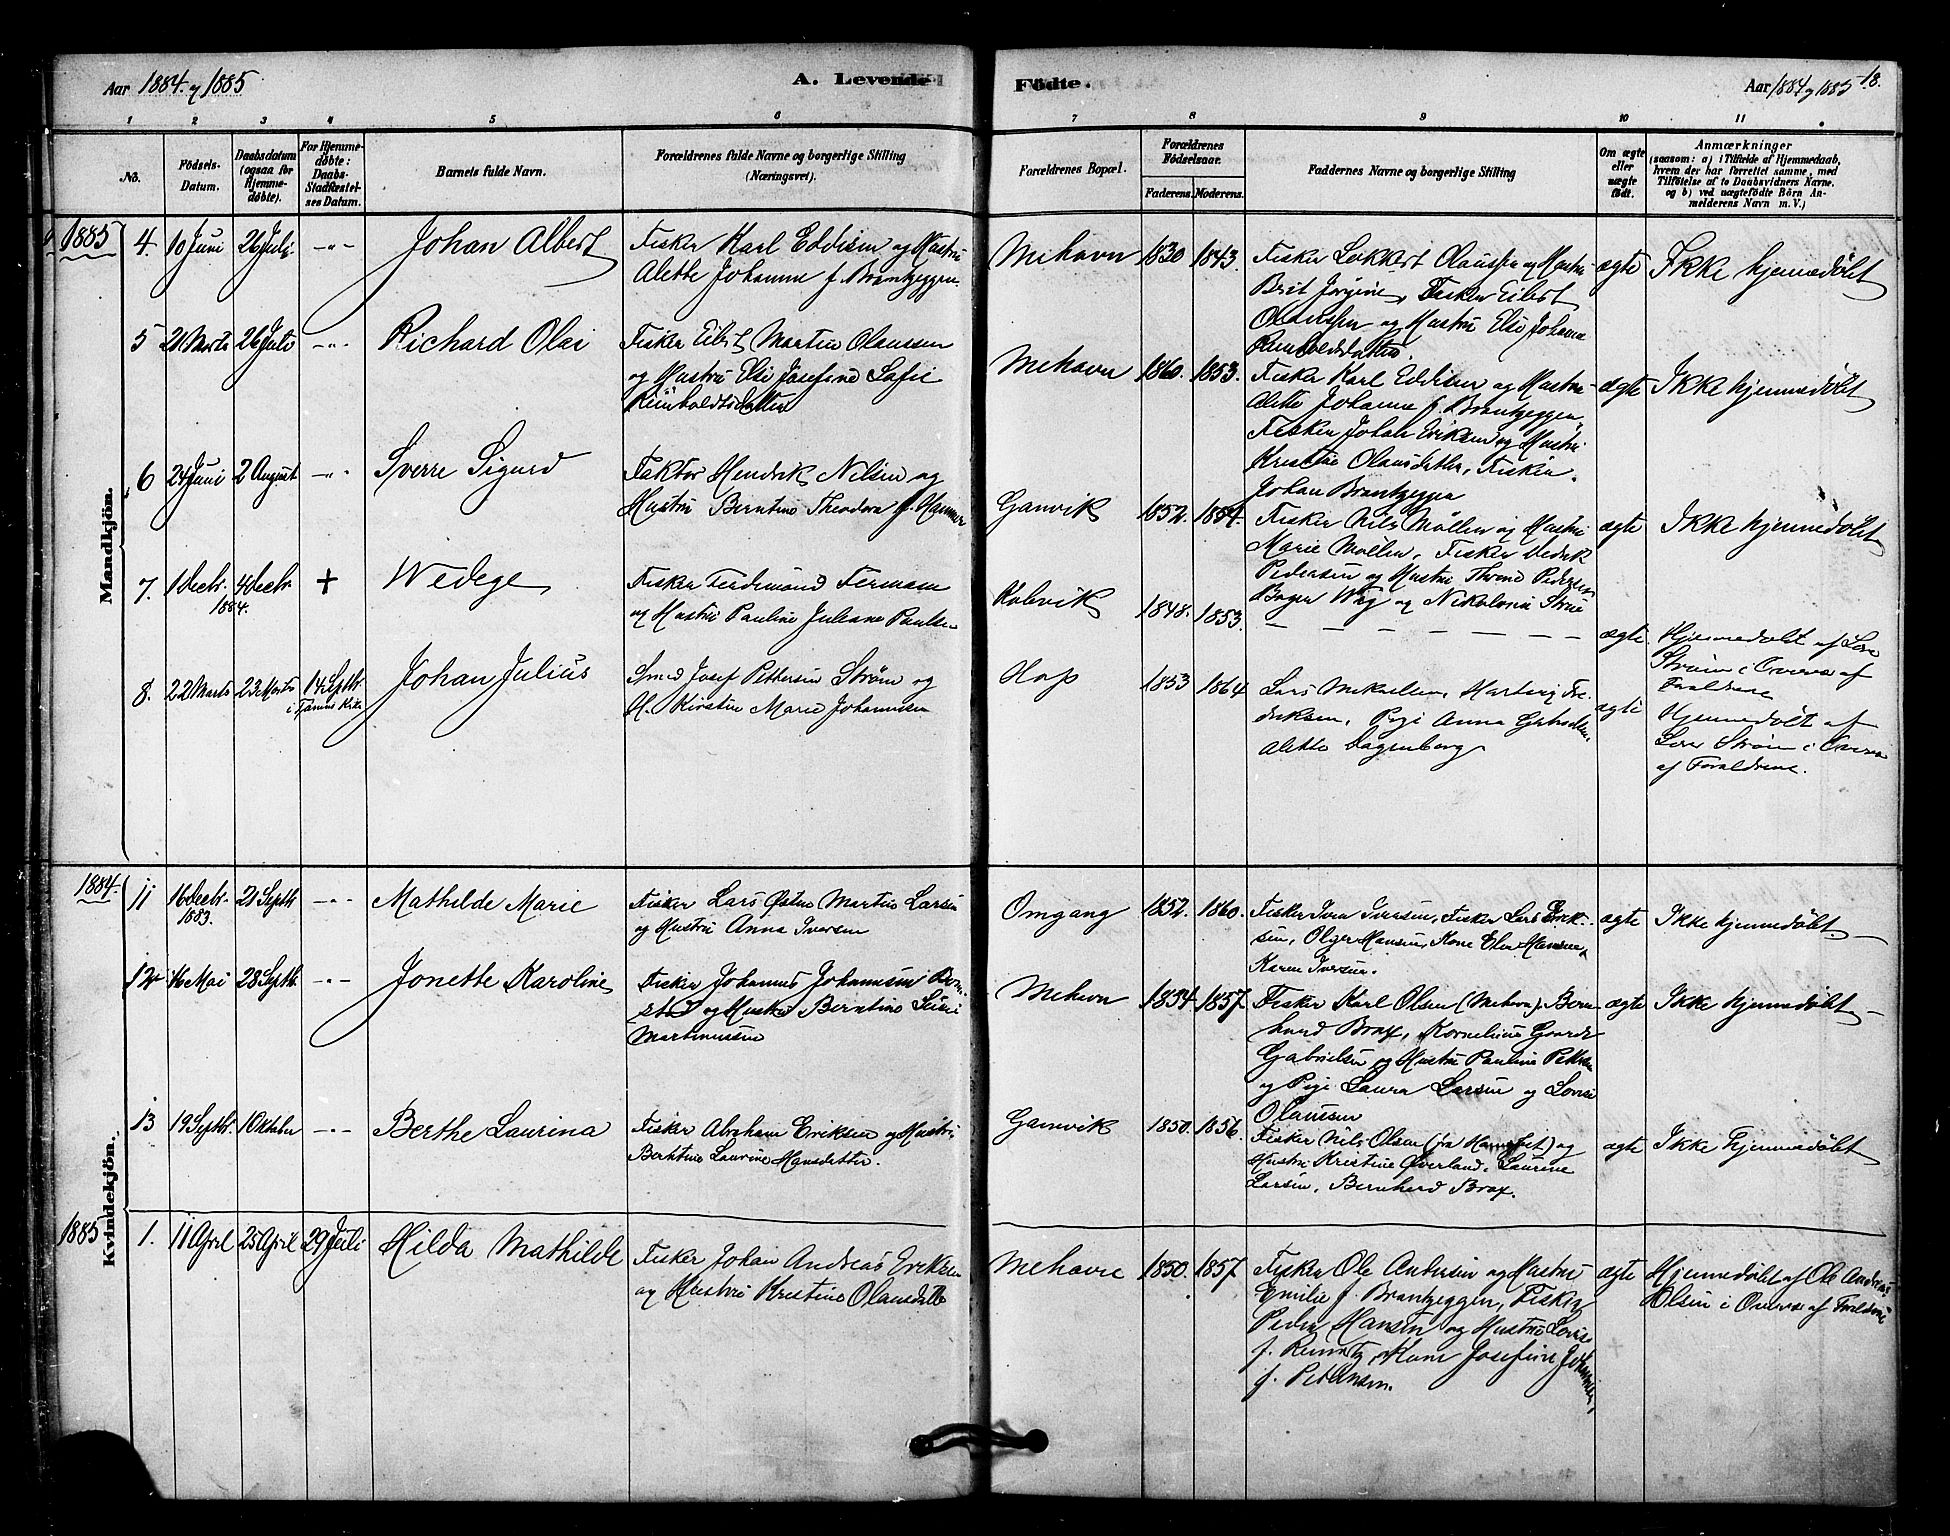 Aar 1884 og 1885
A. Levende
Födte.
Aar 1884 og 1885
18.
1 2 3 4 5 6 7 8 9 10 11
No.
Födsels-Datum.
Daabsdatum (ogsaa for Hjemmedöbte).
For Hjemmedöbte: Daabs-Stadfæstelses Datum.
Barnets fulde Navn.
Forældrenes fulde Navne og borgerlige Stilling (Næringsvei).
Forældrenes Bopæl.
Forældrenes Födselsaar.
Faderens. Moderens.
Faddernes Navne og borgerlig Stilling
Om ægte eller uægte födt.
Anmærkninger
(saasom: a) i Tilfælde af Hjemmedaab, hvem der har forrettet samme, med Tilföielse af to Daabsvidners Navne. og b) ved uægtefödte Börn Anmelderens Navn m. V.)
Mandkjön.
1885
4. 10 Juni 26 Juli -"- Johan Albert
Fisker Karl Eddisen og Hustru
Alette Johanne f. Brantzeggen
Mehavn 1830 1843.
Fisker Lokkert Olaussen og Hustru
Brit Jørgine, Fisker Eilert
Olaussen og Hustru Else Johanna
Reinholdsdatter.
ægte Ikke hjemmedøbt
5 21 Marts 26 Juli -"- Richard Olai
Fisker Eilert Martin Olaussen
og Hustru Else Josefine Sofie
Reinholdtsdatter
Mehavn 1860. 1853.
Fisker Karl Eddisen og Hustru
Alette Johanne f. Brantzeggen,
Fisker Johan Eriksen og Hustru
Kristine Olausdatter, Fisker
Johan Brantzeggen
ægte Ikke hjemmedøbt
6 24 Juni 2 August -"- Sverre Sigurd
Faktor Hendrik Nilsen og
Hustru Berntine Theodora f. Hammer
Gamvik 1852. 1854.
Fisker Nils Møller og Hustru
Marie Møller, Fisker
Pedersen og Hustru Pedersen
Bager og Nikoline
ægte Ikke hjemmedøbt
7. 1 Decbr. 4 Decbr. 1884. + Wedege
Fisker Ferdinand Fermann
og Hustru Pauline Juliane Paulsen
Kolvik 1848. 1853.
— — — — — — —
ægte. Hjemmedøbt af
Strøm i Overvær af
Forældrene
8. 22 Marts 23 Marts 14 Septbr. i Kirke Johan Julius
Smed Josef Pettersen Strøm og
H. Kirstin Marie Johannesen
Hop 1853 1864
Lars Mikaelsen, Hartvig Fre-
driksen, Pige Anna
Alette
ægte Hjemmedøbt af
Strøm i Overvær
af Forældrene.
Kvindekjön.
1884.
11 16 Decbr. 1883. 21 Septbr. -"- Mathilde Marie
Fisker Lars Østen Martin Larsen
og Hustru Anna Iversen
Omgang 1852. 1860.
Fisker Iver Iversen, Fisker Lars Erik-
sen, Olger Hansen, Kone Elen Hansen,
Karen Iversen.
ægte Ikke hjemmedøbt. —
12 16 Mai 28 Septbr. -"- Jonette Karoline
Fisker Johannes Johannesen
og Hustru Berntine
Martinussen
Mehavn 1854. 1857.
Fisker Karl Olsen (Mehavn), Bern-
hard Brox, Kornelius
Gabrielsen og Hustru Pauline
og Pige Laura Larsen og Lovise
Olaussen
ægte Ikke hjemmedøbt —
13 19 Septbr. 1 Oktober -"- Berthe Laurina
Fisker Abraham Eriksen og Hustru
Berntine Laurine Hansdatter.
Gamvik 1850. 1856.
Fisker Nils Olsen (fra ) og
Hustru Kristine Øverland, Laurine
Larsen, Bernhard Brox.
ægte Ikke hjemmedøbt
1885
1. 11 April 25 April 29 Juli Hilda Mathilde
Fisker Johan Andreas Eriksen
og Hustru Kristine Olausdatter
Mehavn 1850. 1857
Fisker Ole Andersen og Hustru
Emilie f. Brantzeggen, Fisker
Peder Hansen og Hustru Lovise
f. , Kone Josefine Johannesen,
f. Petersen.
ægte Hjemmedøbt af Ole Andreas
Olsen i Overvær af Forældrene